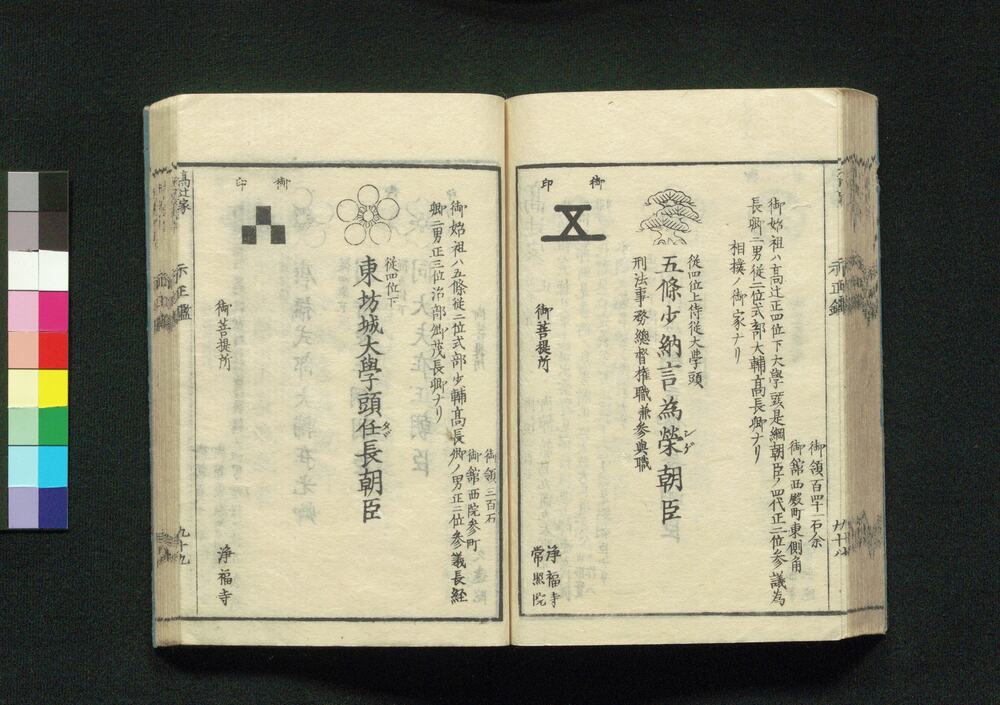 御領百四十一石余
御舘西殿町東側角
御始祖ハ高辻正四位下大學頭是綱朝臣ノ四代正二位参議為
長卿二男従二位式部大輔高長卿ナリ
相撲ノ御家ナリ
従四位上侍従大學頭
五條少納言為榮朝臣
シゲ
刑法事務總督権職兼参與職
御印
御菩提所
浄福寺
常照院
九十八
御領三百石
御舘西院参町
御始祖ハ五條従二位式部少輔高長卿ノ男正二位参議長経
卿二男正三位治部卿茂長卿ナリ
従四位下
東坊城大學頭任長朝臣
タヾ
御印
御菩提所
浄福寺
高辻家
九十九